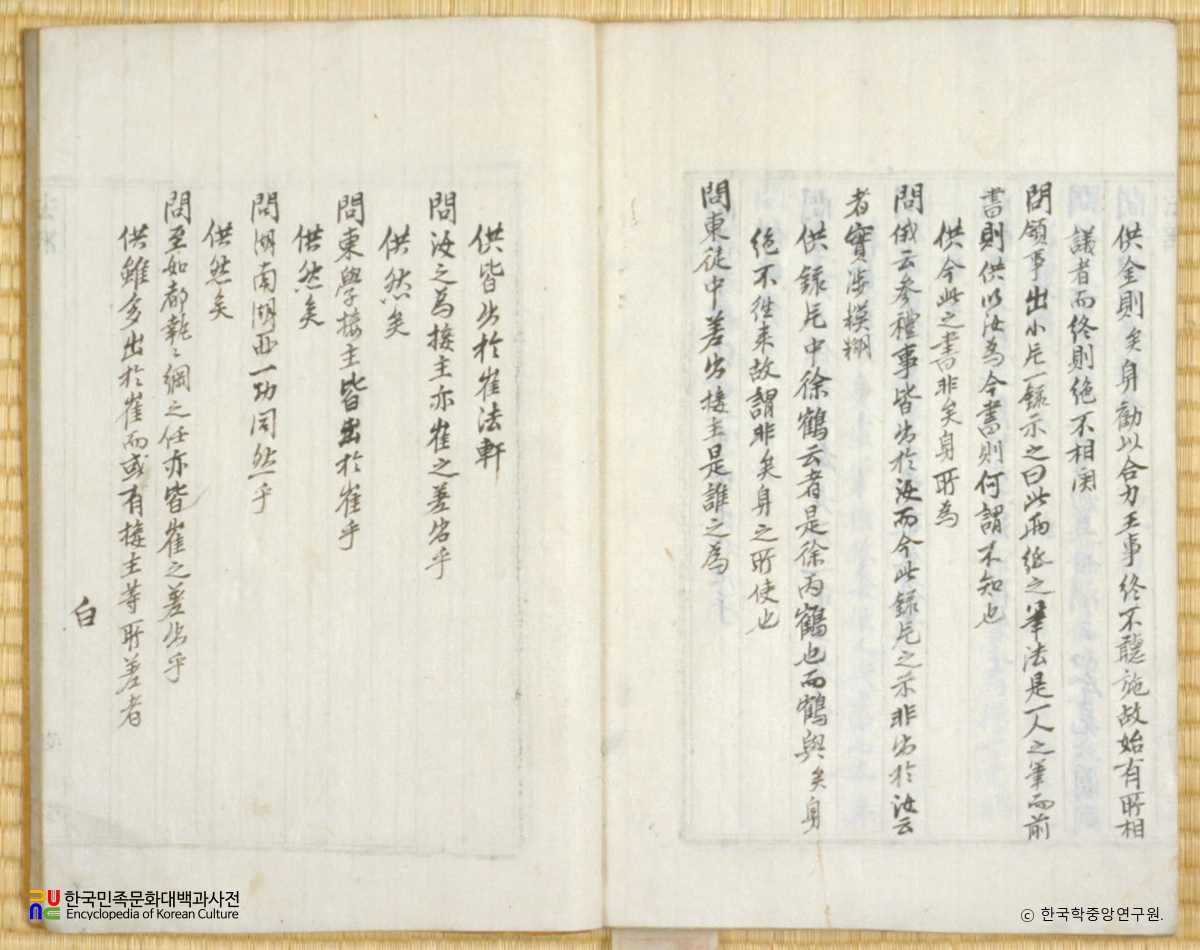 供金則矣身勸以合力王事終不聽施故始有所相
議者而終則絶不相関
問領事出小片一錄示之曰此兩紙之筆法是一人之筆而前
書則供以汝為今書則何謂不知也
供今此之書非矣身所為
問俄云參禮事皆出於汝而今此錄片之示非出於汝云
者實涉模糊
供錄片中徐鶴云者是徐丙鶴也而鶴與矣身
絶不徃来故謂非矣身之所使也
問東徒中差出接主是誰之為
供皆出於崔法軒
問汝之為接主亦崔之差出乎
供然矣
問東學接主皆出於崔乎
供然矣
問湖南湖西一功同然乎
供然矣
問至如都執執綱之任亦皆崔之差出乎
供雖多出於崔而或有接主等所差者
白
한국민족문화대백과사전
Encyclopedia of Korean Culture
ⓒ 한국학중앙연구원.